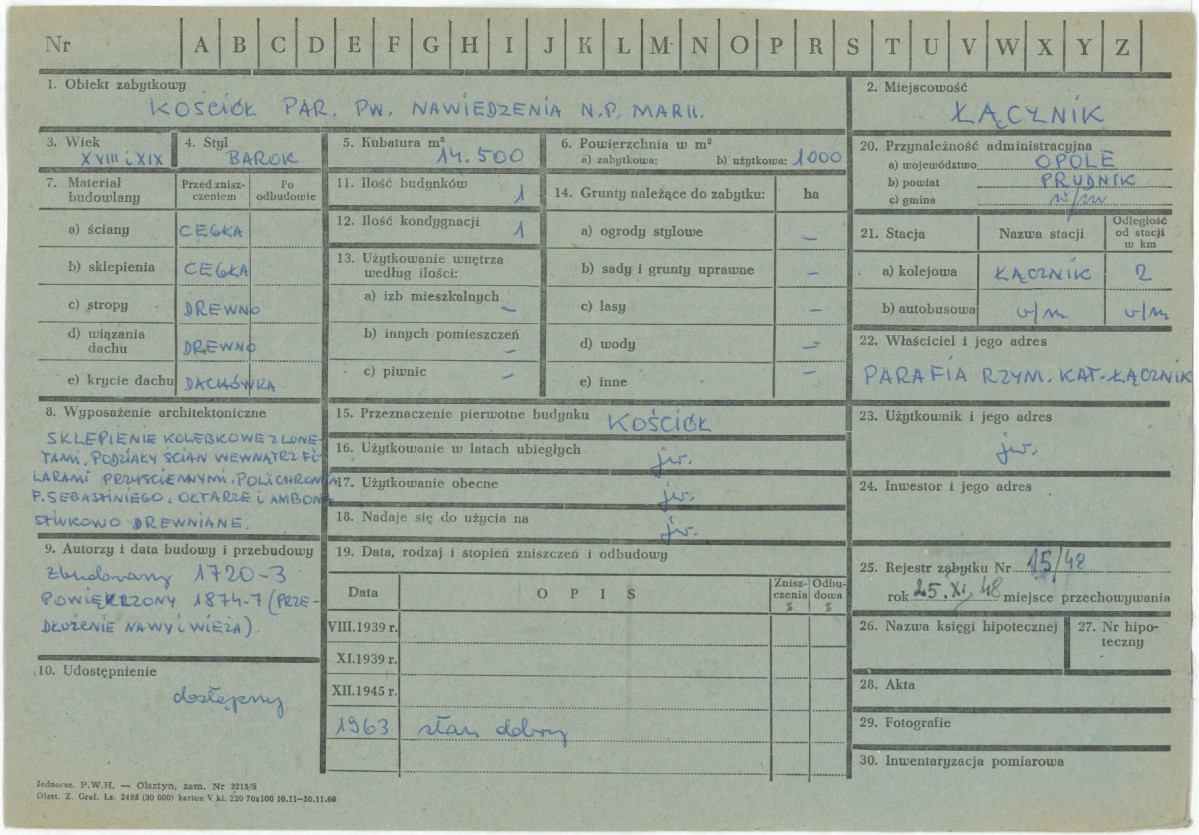 Nr A B C D E F G H I J K L M N O P R S T U V W X Y Z
1. Obiekt zabytkowy
KOŚCIÓŁ PAR. PW. NAWIEDZENIA N.P. MARII.
2. Miejscowość
ŁĄCZNIK
3. Wiek
XVIII i XIX
4. Styl
BAROK
5. Kubatura m³
14.500
6. Powierzchnia w m²
a) zabytkowa: b) użytkowa: 1000
20. Przynależność administracyjna
a) województwo OPOLE
b) powiat PRUDNIK
c) gmina w/m
7. Materiał budowlany
Przed znisz-
czeniem
Po
odbudowie
a) ściany CEGŁA
b) sklepienia CEGŁA
c) stropy DREWNO
d) wiązania
dachu DREWNO
e) krycie dachu DACHÓWKA
11. Ilość budynków 1
12. Ilość kondygnacji 1
13. Użytkowanie wnętrza
według ilości:
a) izb mieszkalnych –
b) innych pomieszczeń –
c) piwnic –
14. Grunty należące do zabytku: ha
a) ogrody stylowe –
b) sady i grunty uprawne –
c) lasy –
d) wody –
e) inne
21. Stacja Nazwa stacji
Odległość
od stacji
w km
a) kolejowa ŁĄCZNIK 2
b) autobusowa w/m w/m
22. Właściciel i jego adres
PARAFIA RZYM. KAT. ŁĄCZNIK
8. Wyposażenie architektoniczne
SKLEPIENIE KOLEBKOWE Z LUNE-
TAMI. PODZIAŁY ŚCIAN WEWNĄTRZ FI-
LARAMI PRZYŚCIENNYMI. POLICHROMIA
F. SEBASTINIEGO. OŁTARZE I AMBONA
DREWNIANE.
15. Przeznaczenie pierwotne budynku KOŚCIÓŁ
16. Użytkowanie w latach ubiegłych jw.
17. Użytkowanie obecne jw.
18. Nadaje się do użycia na jw.
23. Użytkownik i jego adres
jw.
24. Inwestor i jego adres
9. Autorzy i data budowy i przebudowy
Zbudowany 1720-3
POWIĘKRZONY 1874-7 (PRZE-
DŁUŻENIE NAWY I WIEŻA).
10. Udostępnienie
dostępny
19. Data, rodzaj i stopień zniszczeń i odbudowy
Data O P I S
Znisz-
czenia
%
Odbu-
dowa
%
VIII.1939 r.
XI.1939 r.
XII.1945 r.
1963 stan dobry
25. Rejestr zabytku Nr 15/48
rok 25.XI.48 miejsce przechowywania
26. Nazwa księgi hipotecznej
27. Nr hipo-
teczny
28. Akta
29. Fotografie
30. Inwentaryzacja pomiarowa
Jednoraz. P.W.H. — Olsztyn, zam. Nr 3215/S
Olszt. Z. Graf. Lz. 2485 (30 000) karton V kl. 220 70x100 10.11—30.11.60